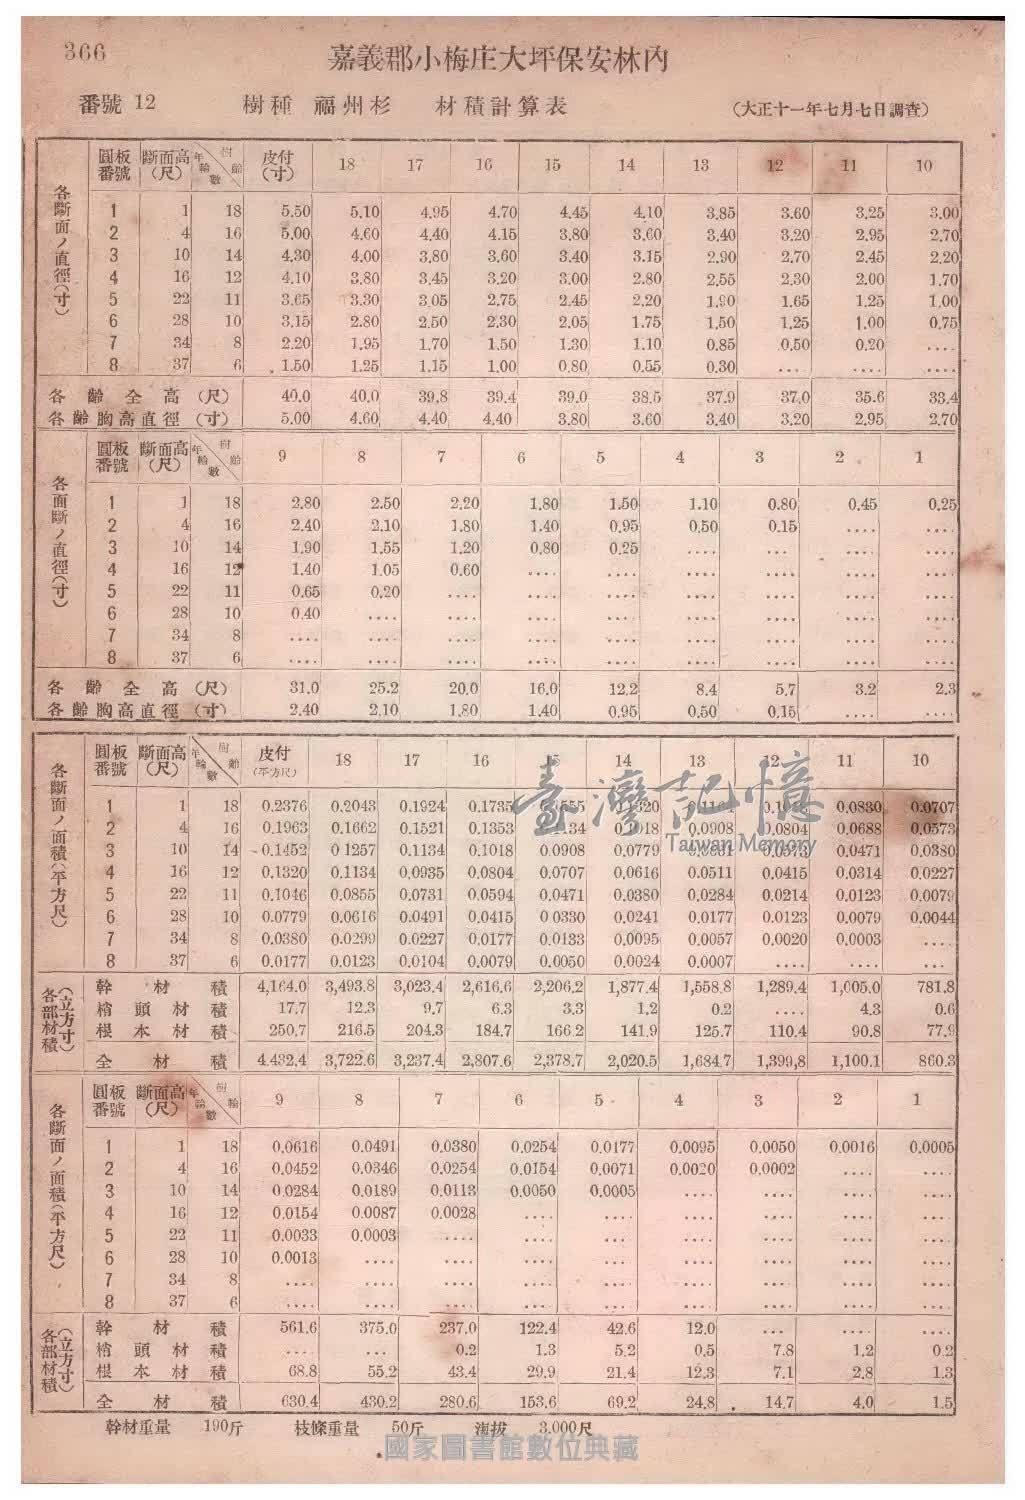 366
嘉義郡小梅庄大坪保安林內
番號 12 樹種 福州杉 材積計算表 (大正十一年七月七日調查)
各斷面ノ直徑(寸)
圓板番號 斷面高(尺) 年輪數 樹齡 皮付(寸) 18 17 16 15 14 13 12 11 10
1 1 18 5.50 5.10 4.95 4.70 4.45 4.10 3.85 3.60 3.25 3.00
2 4 16 5.00 4.60 4.40 4.15 3.80 3.60 3.40 3.20 2.95 2.70
3 10 14 4.30 4.00 3.80 3.60 3.40 3.15 2.90 2.70 2.45 2.20
4 16 12 4.10 3.80 3.45 3.20 3.00 2.80 2.55 2.30 2.00 1.70
5 22 11 3.65 3.30 3.05 2.75 2.45 2.20 1.90 1.65 1.25 1.00
6 28 10 3.15 2.80 2.50 2.30 2.05 1.75 1.50 1.25 1.00 0.75
7 34 8 2.20 1.95 1.70 1.50 1.30 1.10 0.85 0.50 0.20 ....
8 37 6 1.50 1.25 1.15 1.00 0.80 0.55 0.30 ... .... ....
各齡全高(尺) 40.0 40.0 39.8 39.4 39.0 38.5 37.9 37.0 35.6 33.4
各齡胸高直徑(寸) 5.00 4.60 4.40 4.40 3.80 3.60 3.40 3.20 2.95 2.70
各面斷ノ直徑(寸)
圓板番號 斷面高(尺) 年輪數 樹齡 9 8 7 6 5 4 3 2 1
1 1 18 2.80 2.50 2.20 1.80 1.50 1.10 0.80 0.45 0.25
2 4 16 2.40 2.10 1.80 1.40 0.95 0.50 0.15 .... ....
3 10 14 1.90 1.55 1.20 0.80 0.25 .... ... .... ....
4 16 12 1.40 1.05 0.60 .... .... .... .... .... ....
5 22 11 0.65 0.20 .... .... .... .... .... .... ....
6 28 10 0.40 .... .... .... .... .... .... .... ....
7 34 8 .... .... .... .... .... .... .... .... ....
8 37 6 .... .... .... .... .... .... .... .... ....
各齡全高(尺) 31.0 25.2 20.0 16.0 12.2 8.4 5.7 3.2 2.3
各齡胸高直徑(寸) 2.40 2.10 1.80 1.40 0.95 0.50 0.15 .... ....
各斷面ノ面積(平方尺)
圓板番號 斷面高(尺) 年輪數 樹齡 皮付(平方尺) 18 17 16 15 14 13 12 11 10
1 1 18 0.2376 0.2043 0.1924 0.1735 0.0830 0.0707
2 4 16 0.1963 0.1662 0.1521 0.1353 0.0908 0.0804 0.0688 0.0573
3 10 14 0.1452 0.1257 0.1134 0.1018 0.0908 0.0779 0.0471 0.0380
4 16 12 0.1320 0.1134 0.0935 0.0804 0.0707 0.0616 0.0511 0.0415 0.0314 0.0227
5 22 11 0.1046 0.0855 0.0731 0.0594 0.0471 0.0380 0.0284 0.0214 0.0123 0.0079
6 28 10 0.0779 0.0616 0.0491 0.0415 0.0330 0.0241 0.0177 0.0123 0.0079 0.0044
7 34 8 0.0380 0.0299 0.0227 0.0177 0.0133 0.0095 0.0057 0.0020 0.0003 ....
8 37 6 0.0177 0.0123 0.0104 0.0079 0.0050 0.0024 0.0007 .... .... ...
各部材積(立方寸)
幹材積 4,164.0 3,493.8 3,023.4 2,616.6 2,206.2 1,877.4 1,558.8 1,289.4 1,005.0 781.8
梢頭材積 17.7 12.3 9.7 6.3 3.3 1.2 0.2 .... 4.3 0.6
根本材積 250.7 216.5 204.3 184.7 166.2 141.9 125.7 110.4 90.8 77.9
全材積 4.432.4 3,722.6 3,237.4 2,807.6 2,378.7 2,020.5 1,684.7 1,399,8 1,100.1 860.3
各斷面ノ面積(平方尺)
圓板番號 斷面高(尺) 年輪數 樹輪 9 8 7 6 5 4 3 2 1
1 1 18 0.0616 0.0491 0.0380 0.0254 0.0177 0.0095 0.0050 0.0016 0.0005
2 4 16 0.0452 0.0346 0.0254 0.0154 0.0071 0.0020 0.0002 .... ....
3 10 14 0.0284 0.0189 0.0113 0.0050 0.0005 .... .... .... ....
4 16 12 0.0154 0.0087 0.0028 .... .... .... .... .... ....
5 22 11 0.0033 0.0003 .... .... .... .... .... .... ....
6 28 10 0.0013 .... .... .... .... .... .... .... ....
7 34 8 .... .... .... .... .... .... .... .... ....
8 37 6 .... .... .... .... .... .... .... .... ....
各部材積(立方寸)
幹材積 561.6 375.0 237.0 122.4 42.6 12.0 ... .... ....
梢頭材積 .... ... 0.2 1.3 5.2 0.5 7.8 1.2 0.2
根本材積 68.8 55.2 43.4 29.9 21.4 12.3 7.1 2.8 1.3
全材積 630.4 430.2 280.6 153.6 69.2 24.8 14.7 4.0 1.5
幹材重量 190斤 枝條重量 50斤 海拔 3.000尺
臺灣記憶
Taiwan Memory
國家圖書館數位典藏